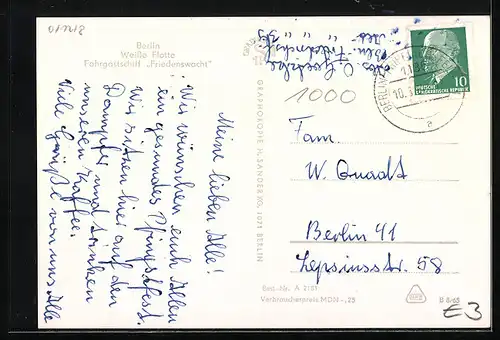 Berlin
Weiße Flotte
Fahrgastschiff „Friedenswacht"
Meine lieben Alle!
Wir wünschen euch Allen
ein gesundes Pfingstfest.
Wir sitzen hier auf den
Dampfer und trinken
unseren Kaffee.
Viele Grüße von uns Alle
GRAPHOKOPIE H. SANDER KG, 1071 BERLIN
1000
DEUTSCHE
DEMOKRATISCHE REPUBLIK
10
BERLIN
Fam.
W. Quadt
Berlin 41
Lepsiusstr. 58
Best.-Nr. A 2181
Verbraucherpreis MDN -,25
II 6/65
E3